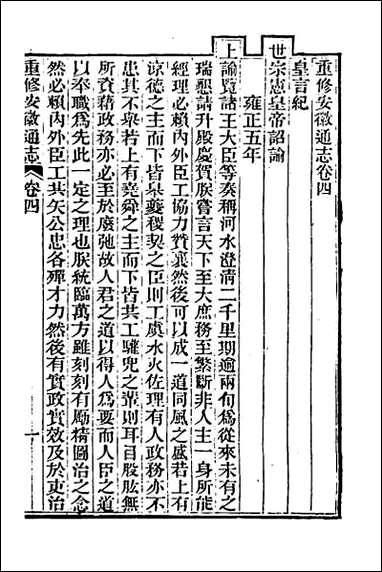 重修安徽通志卷四
皇言紀
世宗憲皇帝詔諭
雍正五年
上諭覽諸王大臣等奏稱河水澄清二千里期逾兩旬爲從來未有之
瑞懇請升殿慶賀朕嘗言天下至大庶務至繁斷非人主一身所能
經理必賴內外臣工協力贊襄然後可以成一道同風之盛若上有
諒德之主而下皆臯夔稷契之臣則工虞水火佐理有人政務亦不
患其不舉若上有堯舜之主而下皆共工驩兜之輩則耳目股肱無
所資藉政務亦必至於廢弛故人君之道以得人爲要而人臣之道
以奉職爲先此一定之理也朕統臨萬方雖刻刻有勵精圖治之念
然必賴內外臣工共矢公忠各殫才力然後有實政實效及於吏治
重修安徽通志
卷四
一